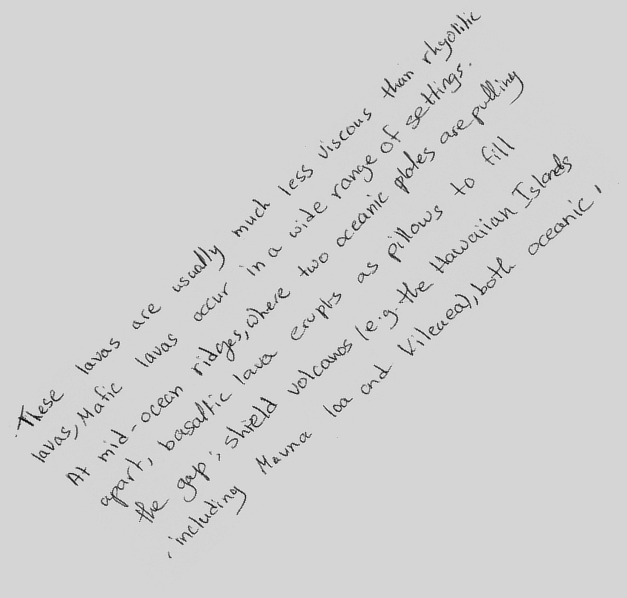 These lavas are usually much less viscous than rhyolitic
lavas, Mafic lavas occur in a wide range of settings.
At mid-ocean ridges, where two oceanic plates are pulling
apart, basaltic lava erupts as pillows to fill
the gap; shield volcanos (e.g. the Hawaiian Islands
, including Mauna loa and Kileuea), both oceanic,